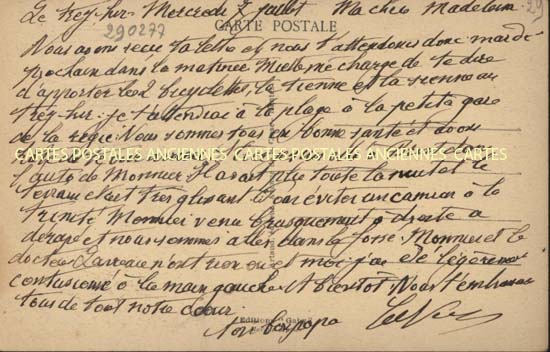 Le Trez-Hir Mercredi 3 Juillet Ma chère Madeleine 29
CARTE POSTALE
290277
Nous avons reçu ta lettre et nous t'attendons donc mardi
prochain dans la matinée me charge de te dire
d'apporter les 2 bicyclettes, la tienne et la sienne au
Trez-Hir. Je t'attendrai à la plage à la petite gare
de la régie. Nous sommes tous en bonne santé et
CARTES POSTALES ANCIENNES CARTES POSTALES ANCIENNES CARTES
l'auto de Monnier. Il avait plu toute la nuit et le
terrain était très glissant. Pour éviter un camion à la
Trinité Monnier venu brusquement à droite a
dérapé et nous sommes allés dans le fossé. Monnier et le
docteur n'ont rien eu et moi j'ai été légèrement
contusionné à la main gauche. A bientôt. Nous t'embrassons
tous de tout notre cœur.
Editions
Ton bon papa